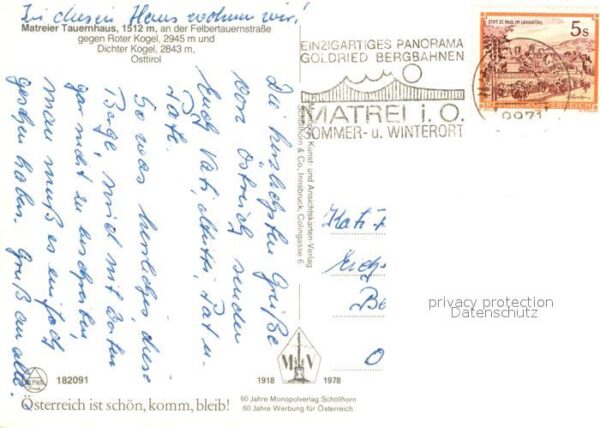 In diesem Haus wohnen wir!
Matreier Tauernhaus, 1512 m, an der Felbertauernstraße
gegen Roter Kogel, 2945 m und
Dichter Kogel, 2843 m,
Osttirol
EINZIGARTIGES PANORAMA
GOLDRIED BERGBAHNEN
MATREI i. O.
SOMMER- u. WINTERORT
9971
STIFT ST. PAUL IM LAVANTTAL
5 S
Die herzlichsten Grüße
von Östreich senden
Euch Vati,
Pat u.
Pate.
So was herrliches, diese
Berge, wird mit Worten
gar nicht zu
man muß es einfach
gesehen haben. Gruß an alle.
Kunst- und Ansichtskarten-Verlag
Schöllhorn & Co., Innsbruck, Colingasse 6
Kati
Be
O
privacy protection
Datenschutz
MV
1918 1978
182091
Österreich ist schön, komm, bleib!
60 Jahre Monopolverlag Schöllhorn
60 Jahre Werbung für Österreich